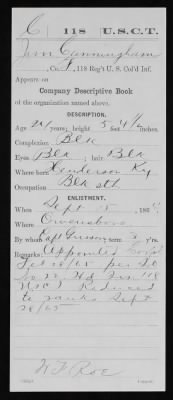 C | 118 | U.S.C.T.
Jim Cunningham
, Co. F, 118 Reg't U. S. Col'd Inf.
Appears on
Company Descriptive Book
of the organization named above.
DESCRIPTION.
Age 24 years; height 5 feet 4½ inches.
Complexion Blk
Eyes Blk ; hair Blk
Where born Henderson Ky
Occupation Blk Sth
ENLISTMENT.
When Sept 15, 186
Where Owensboro
By whom Capt ; term 3 y'rs.
Remarks: Appointed Corpl
Feb 28/65 per S.O.
No 22 Hd Qrs 118
U.S.C.I. Reduced
to ranks Sept
28/65
Roe